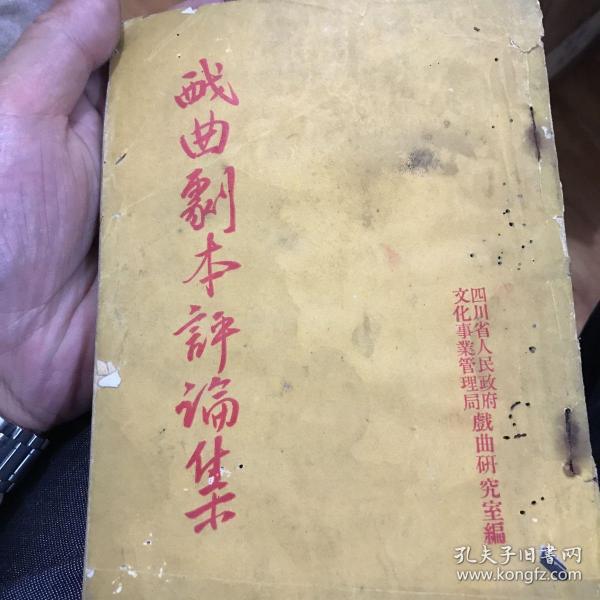 戯曲劇本評論集
四川省人民政府
文化事業管理局
戲曲研究室編
孔夫子旧書网
www.kongfz.com